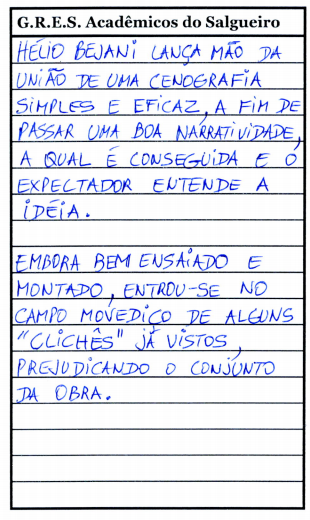 G.R.E.S. Acadêmicos do Salgueiro
HÉLIO BEJANI LANÇA MÃO DA
UNIÃO DE UMA CENOGRAFIA
SIMPLES E EFICAZ, A FIM DE
PASSAR UMA BOA NARRATIVIDADE,
A QUAL É CONSEGUIDA E O
EXPECTADOR ENTENDE A
IDÉIA.
EMBORA BEM ENSAIADO E
MONTADO, ENTROU-SE NO
CAMPO MOVEDIÇO DE ALGUNS
"CLICHÊS" JÁ VISTOS,
PREJUDICANDO O CONJUNTO
DA OBRA.